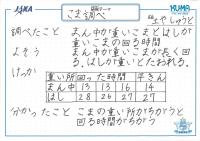 JAXA
KUMA
研究テーマ
こま調べ
調べたこと まん中が重いこまとはしが
重いこまの回る時間
よそう まん中が重いこまが長く回
る。はしが重いとたおれる。
けっか
重い所 回った時間 平きん
まん中 13 13 16 14
はし 28 26 27 27
分かったこと こまの重い所がちがうと
回る時間がちがう